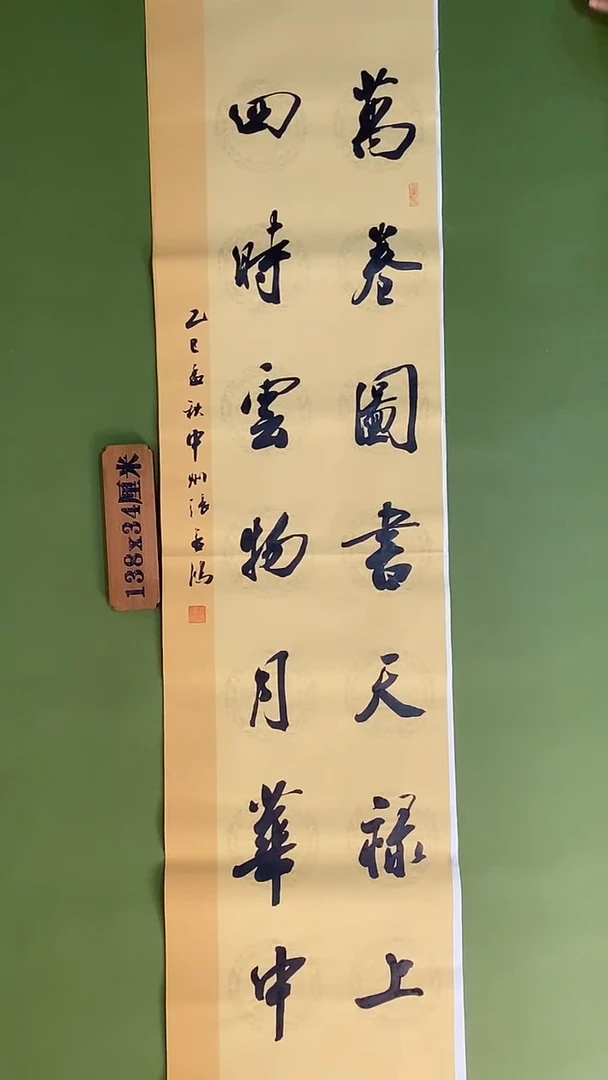 萬卷圖書天祿上
四時雲物月華中
乙巳孟秋中州張孟鴻
138x34厘米